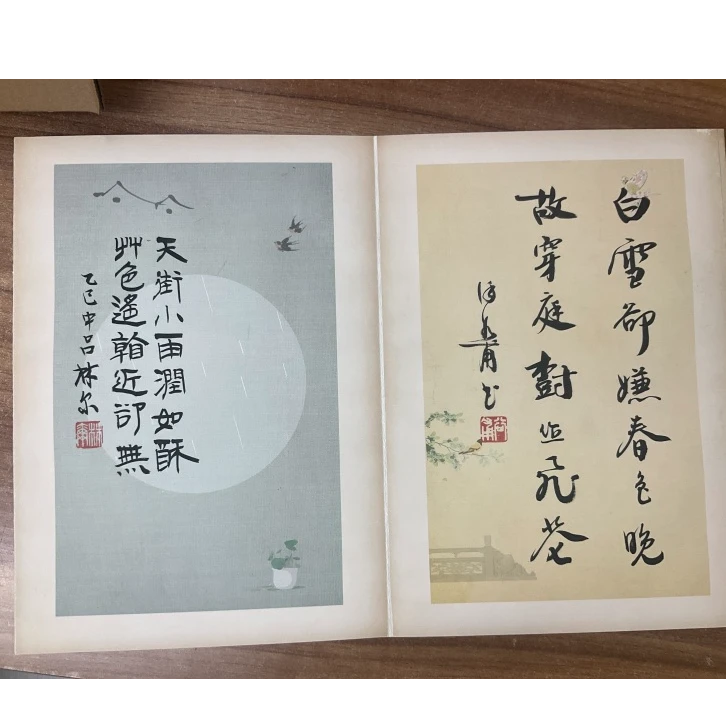 白雪卻嫌春色晚
故穿庭樹作飛花
書
天街小雨潤如酥
艸色遙看近卻無
乙巳中吕林尔